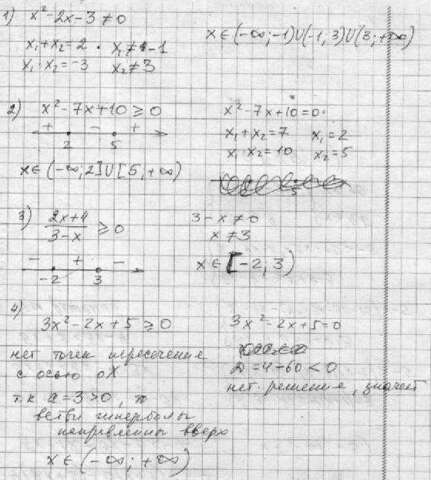 1) x² - 2x - 3 ≠ 0
x₁ + x₂ = 2 · x₁ ≠ -1
x₁ · x₂ = -3 x₂ ≠ 3
x ∈ (-∞; -1) ∪ (-1, 3) ∪ (3; +∞)
2) x² - 7x + 10 ≥ 0
+ - +
2 5
x ∈ (-∞, 2] ∪ [5, +∞)
x² - 7x + 10 = 0
x₁ + x₂ = 7 x₁ = 2
x₁ x₂ = 10 x₂ = 5
3) 2x+4
3-x ≥ 0
- + -
-2 3
3 - x ≠ 0
x ≠ 3
x ∈ [-2, 3)
4)
3x² - 2x + 5 ≥ 0
нет точек пересечение
с осью оХ
т.к а = 3 > 0, то
ветви гиперболы
направленны вверх
x ∈ (-∞; +∞)
3x² - 2x + 5 = 0
D = 4 + 60 < 0
нет решение, значит